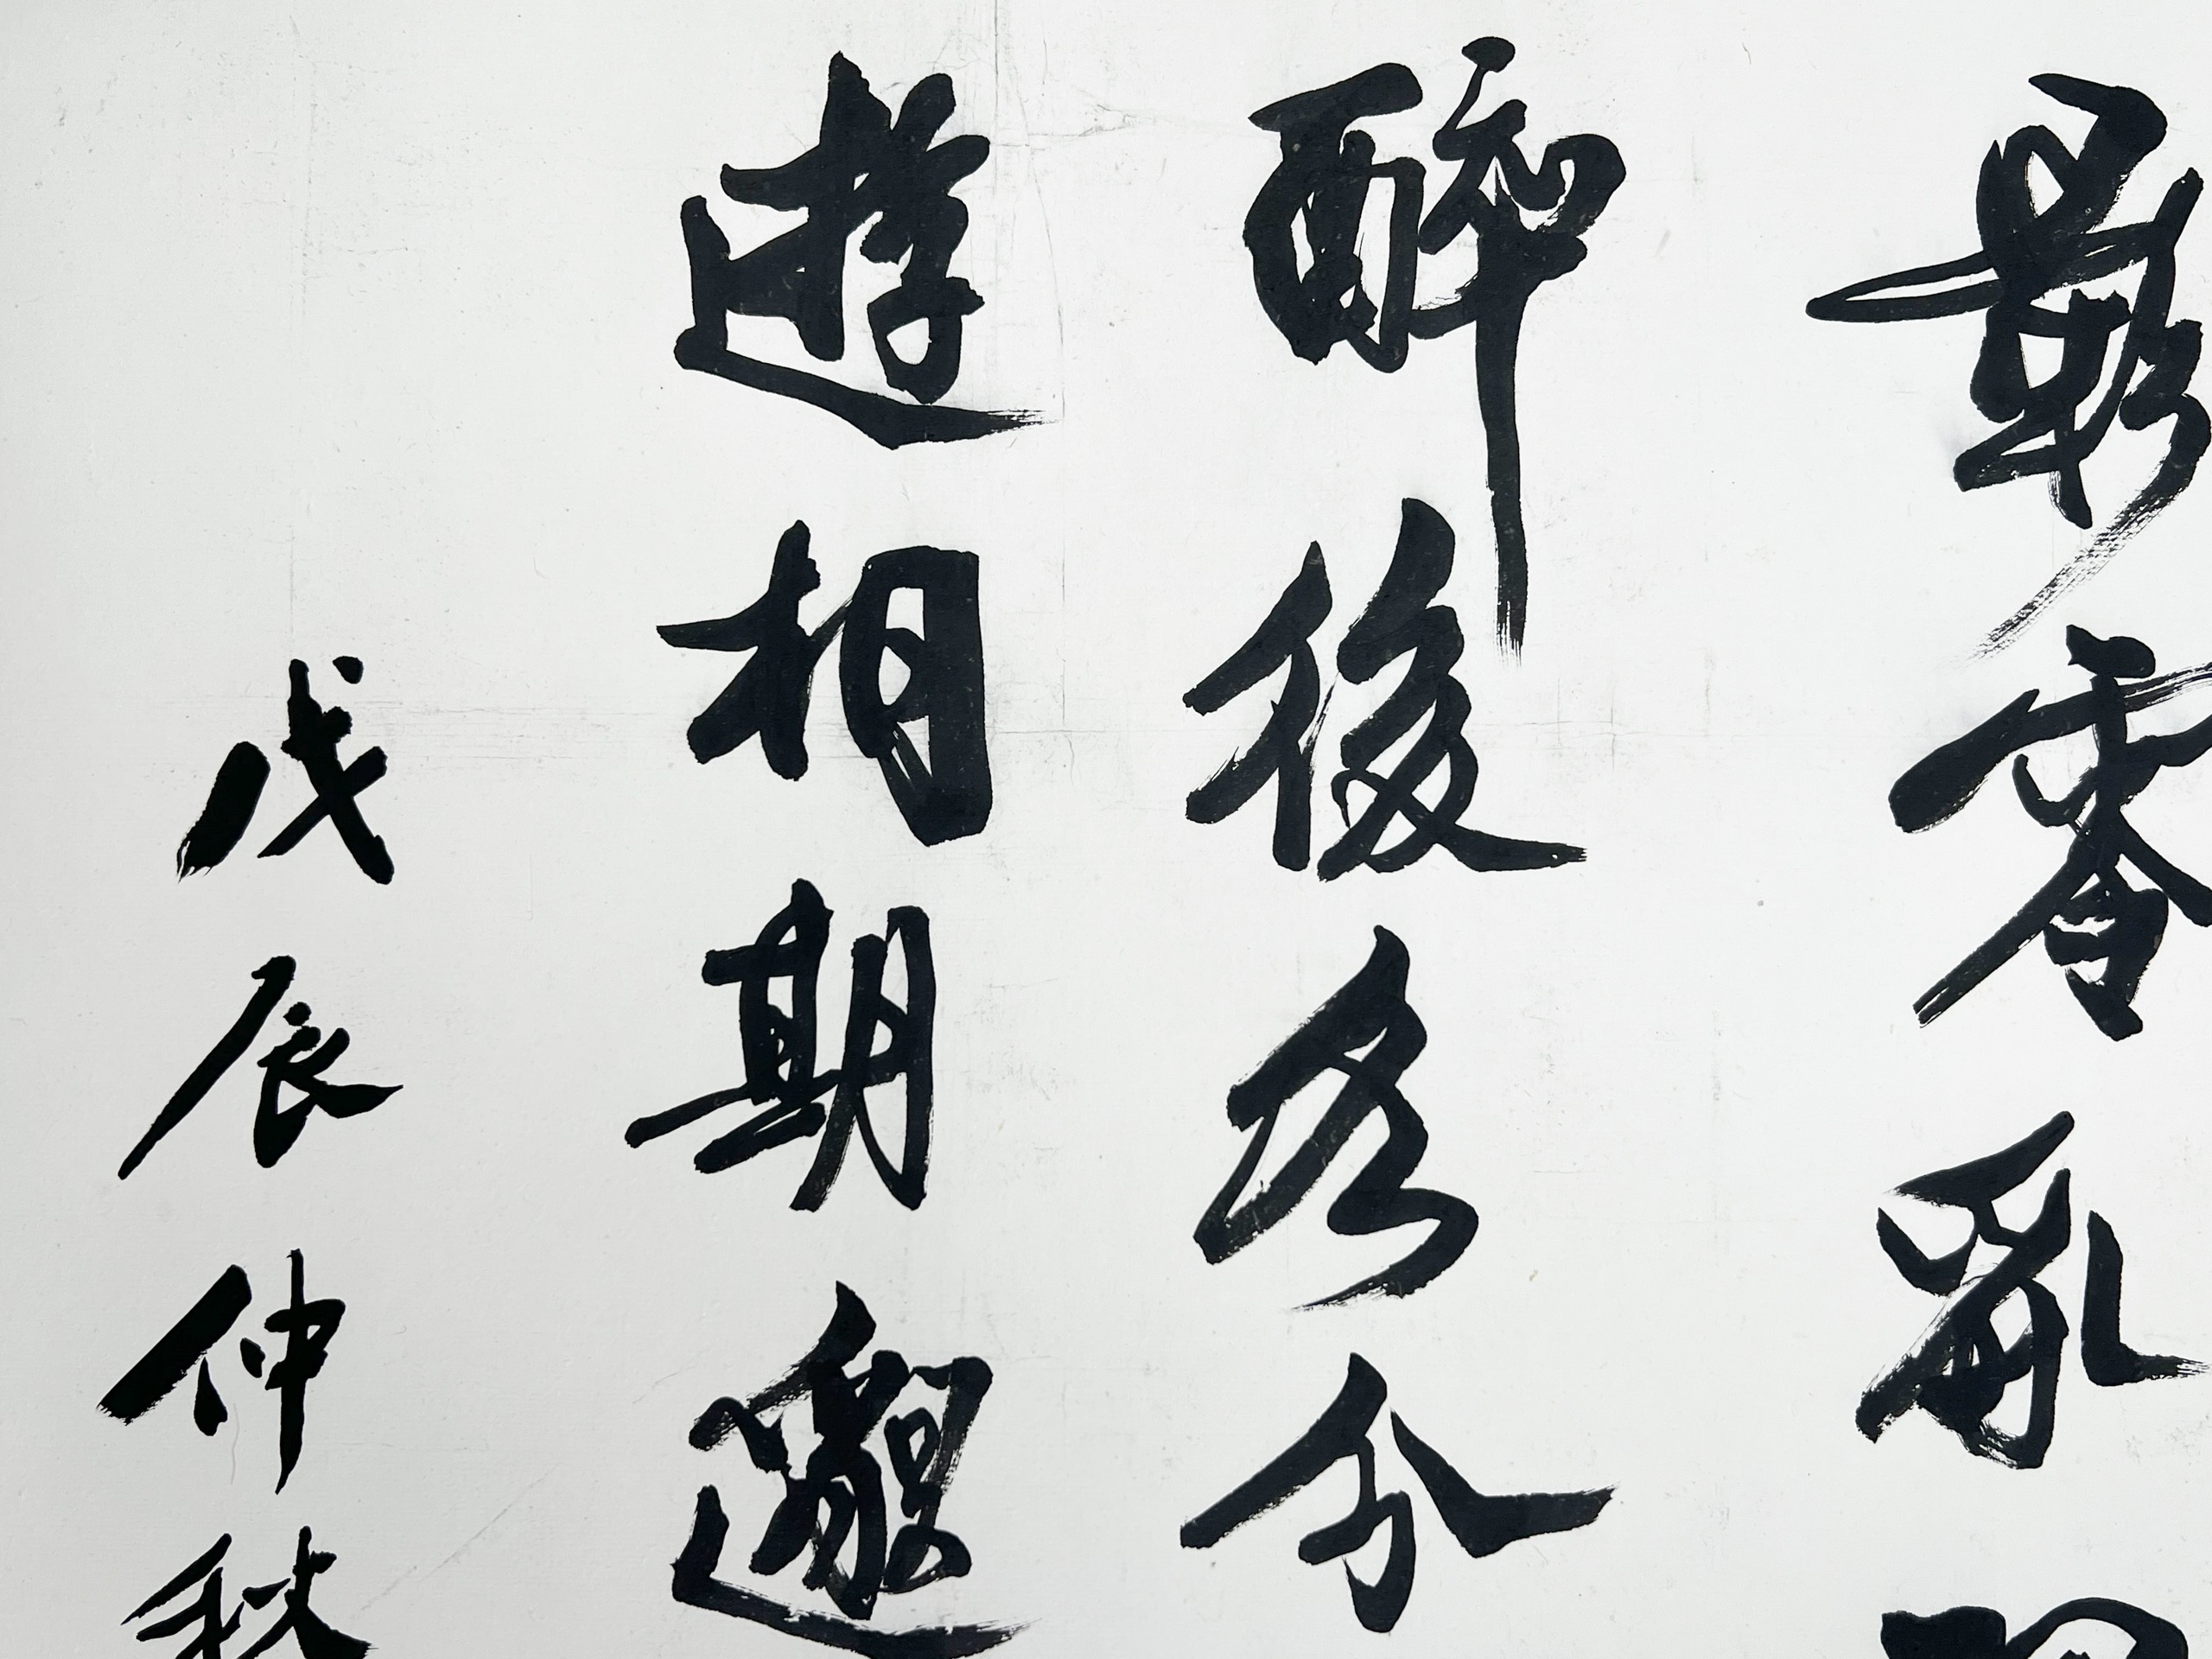 影零亂
醉後各分
遊相期邈
戊辰仲秋